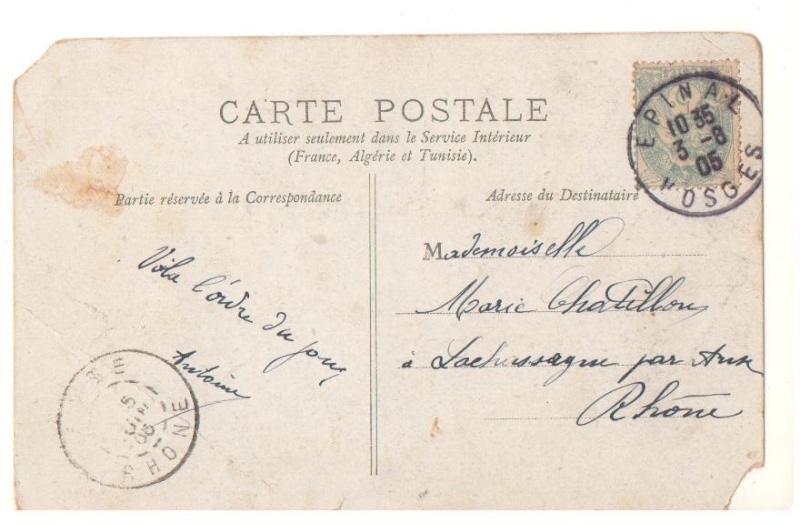 CARTE POSTALE
A utiliser seulement dans le Service Intérieur
(France, Algérie et Tunisie).
EPINAL
10 35
3 -8
05
VOSGES
Partie réservée à la Correspondance
Adresse du Destinataire
Voila l'ordre du jour
Antoine
Mademoiselle
Marie Chatillon
à Lachassagne par Anse
Rhône
RHONE